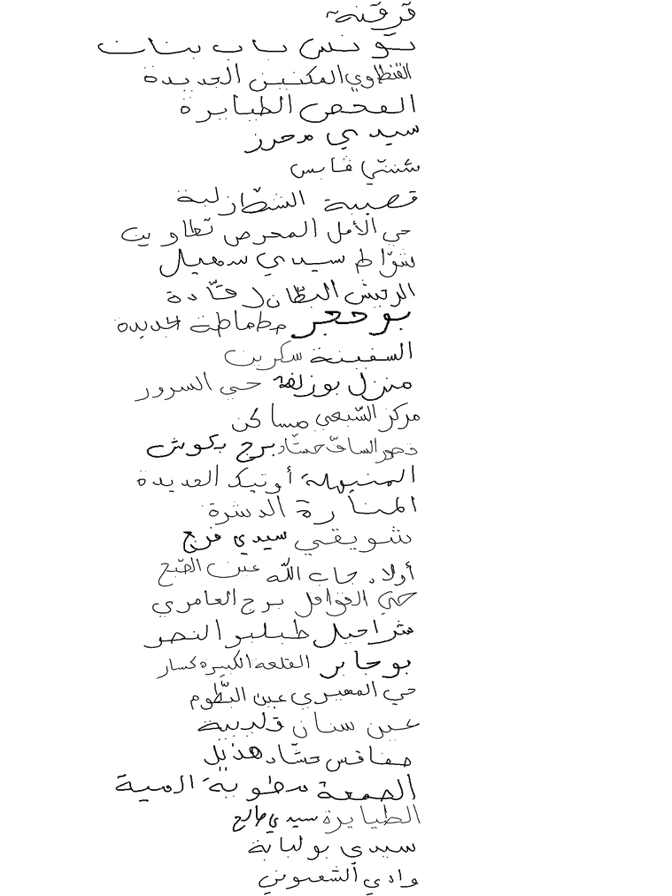 قرقنة
تونس باب بنات
القنطاوي المكنين الجديدة
الفحص الطبايرة
سيدي محرز
شنني قابس
قصيبة الشط زلبة
حي الأمل المحرص تطاوين
شواط سيدي سهيل
الرتيش البطان قتادة
بوحجر مطماطة الجديدة
السفينة سكرين
منزل بوزلفة حي السرور
مركز الشبعي مساكن
حشاد برج بكوش
المنيهلة أوتيك الجديدة
المنارة الدشرة
شويقي سيدي فرج
أولاد جاب الله عين الضبع
حي القوافل برج العامري
شراحيل طبلبو النصر
بوجابر القلعة الكبيرة كسار
حي المعيزي عين البطوم
عين سنان قليبية
صفاقس حشاد هذيل
الجمعة مطوية المية
الطيايرة سيدي صالح
سيدي بولبابة
وادي الشعبوني